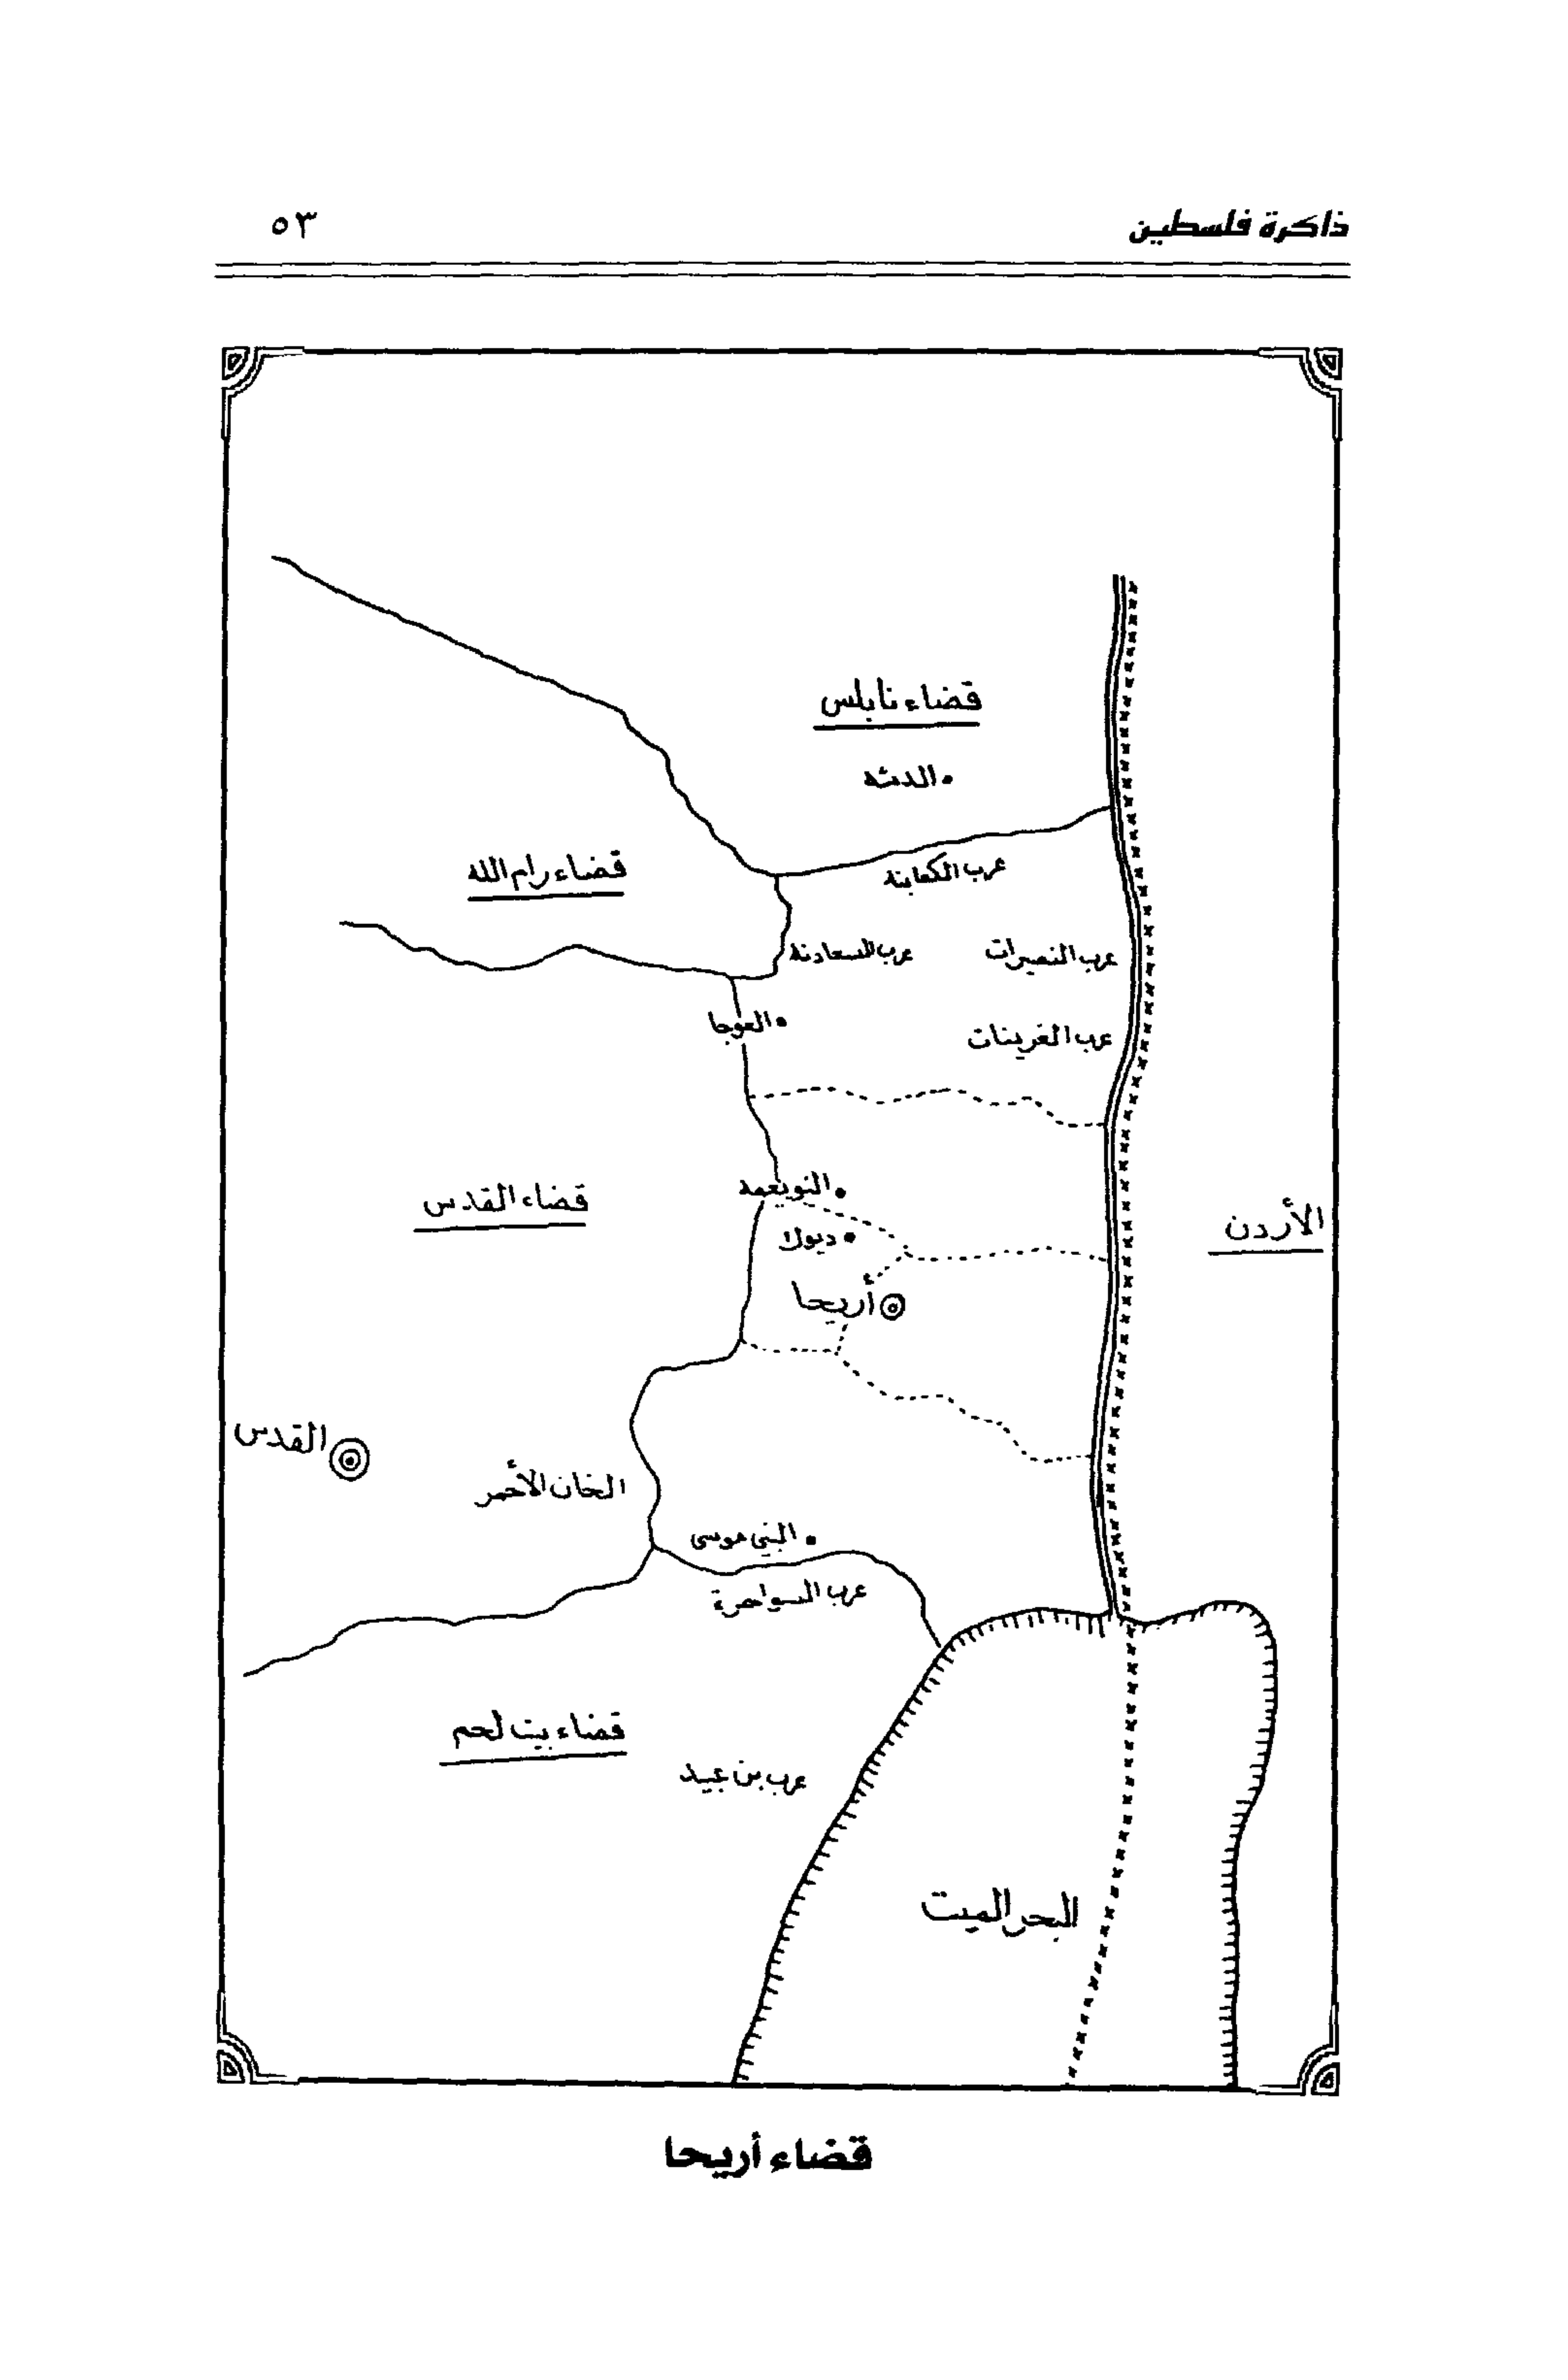 ذاكرة فلسطين
٥٣
قضاء نابلس
قضاء رام الله
عرب الكعابنة
عرب النصيرات
عرب السعادنة
العوجا
عرب الغرينات
النويعمه
قضاء القدس
الأردن
ديوك
أريحا
القدس
الخان الأحمر
البني موسى
عرب السواحرة
قضاء بيت لحم
عرب بن عبيد
البحر الميت
قضاء أريحا